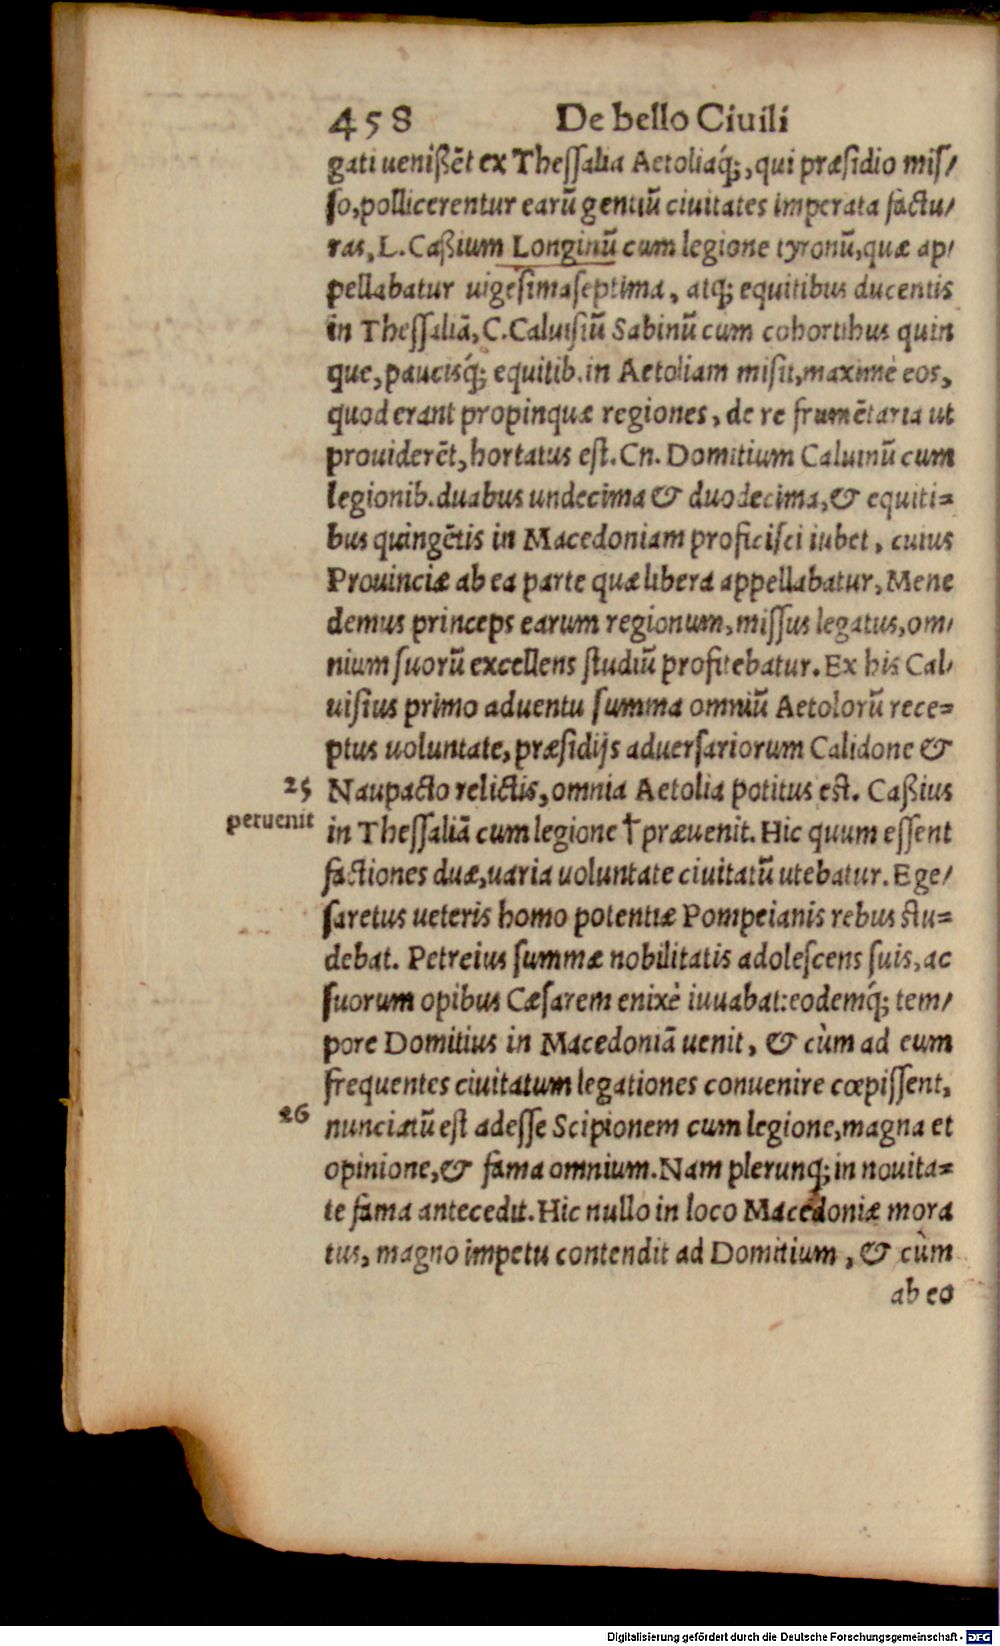 458 De bello Ciuili
gati uenißēt ex Thessalia Aetoliaq́;, qui præsidio mis/
so, pollicerentur earū gentiū ciuitates imperata factu/
ras, L. Caßium Longinū cum legione tyronū, quæ ap/
pellabatur uigesimaseptima, atq; equitibus ducentis
in Thessaliā, C. Caluisiū Sabinū cum cohortibus quin
que, paucisq́; equitib. in Aetoliam misit, maximè eos,
quod erant propinquæ regiones, de re frumētaria ut
prouiderēt, hortatus est. Cn. Domitium Caluinū cum
legionib. duabus undecima & duodecima, & equiti=
bus quingētis in Macedoniam proficisci iubet, cuius
Prouinciæ ab ea parte quæ libera appellabatur, Mene
demus princeps earum regionum, missus legatus, om/
nium suorū excellens studiū profitebatur. Ex his Cal/
uisius primo aduentu summa omniū Aetolorū rece=
ptus uoluntate, præsidijs aduersariorum Calidone &
25 Naupacto relictis, omnia Aetolia potitus est. Caßius
peruenit in Thessaliā cum legione † præuenit. Hic quum essent
factiones duæ, uaria uoluntate ciuitatū utebatur. Ege/
saretus ueteris homo potentiæ Pompeianis rebus stu=
debat. Petreius summæ nobilitatis adolescens suis, ac
suorum opibus Cæsarem enixè iuuabat: eodemq́; tem/
pore Domitius in Macedoniā uenit, & cùm ad eum
frequentes ciuitatum legationes conuenire cœpissent,
26 nunciatū est adesse Scipionem cum legione, magna et
opinione, & fama omnium. Nam plerunq; in nouita=
te fama antecedit. Hic nullo in loco Macedoniæ mora
tus, magno impetu contendit ad Domitium, & cùm
ab eo
Digitalisierung gefördert durch die Deutsche Forschungsgemeinschaft - DFG